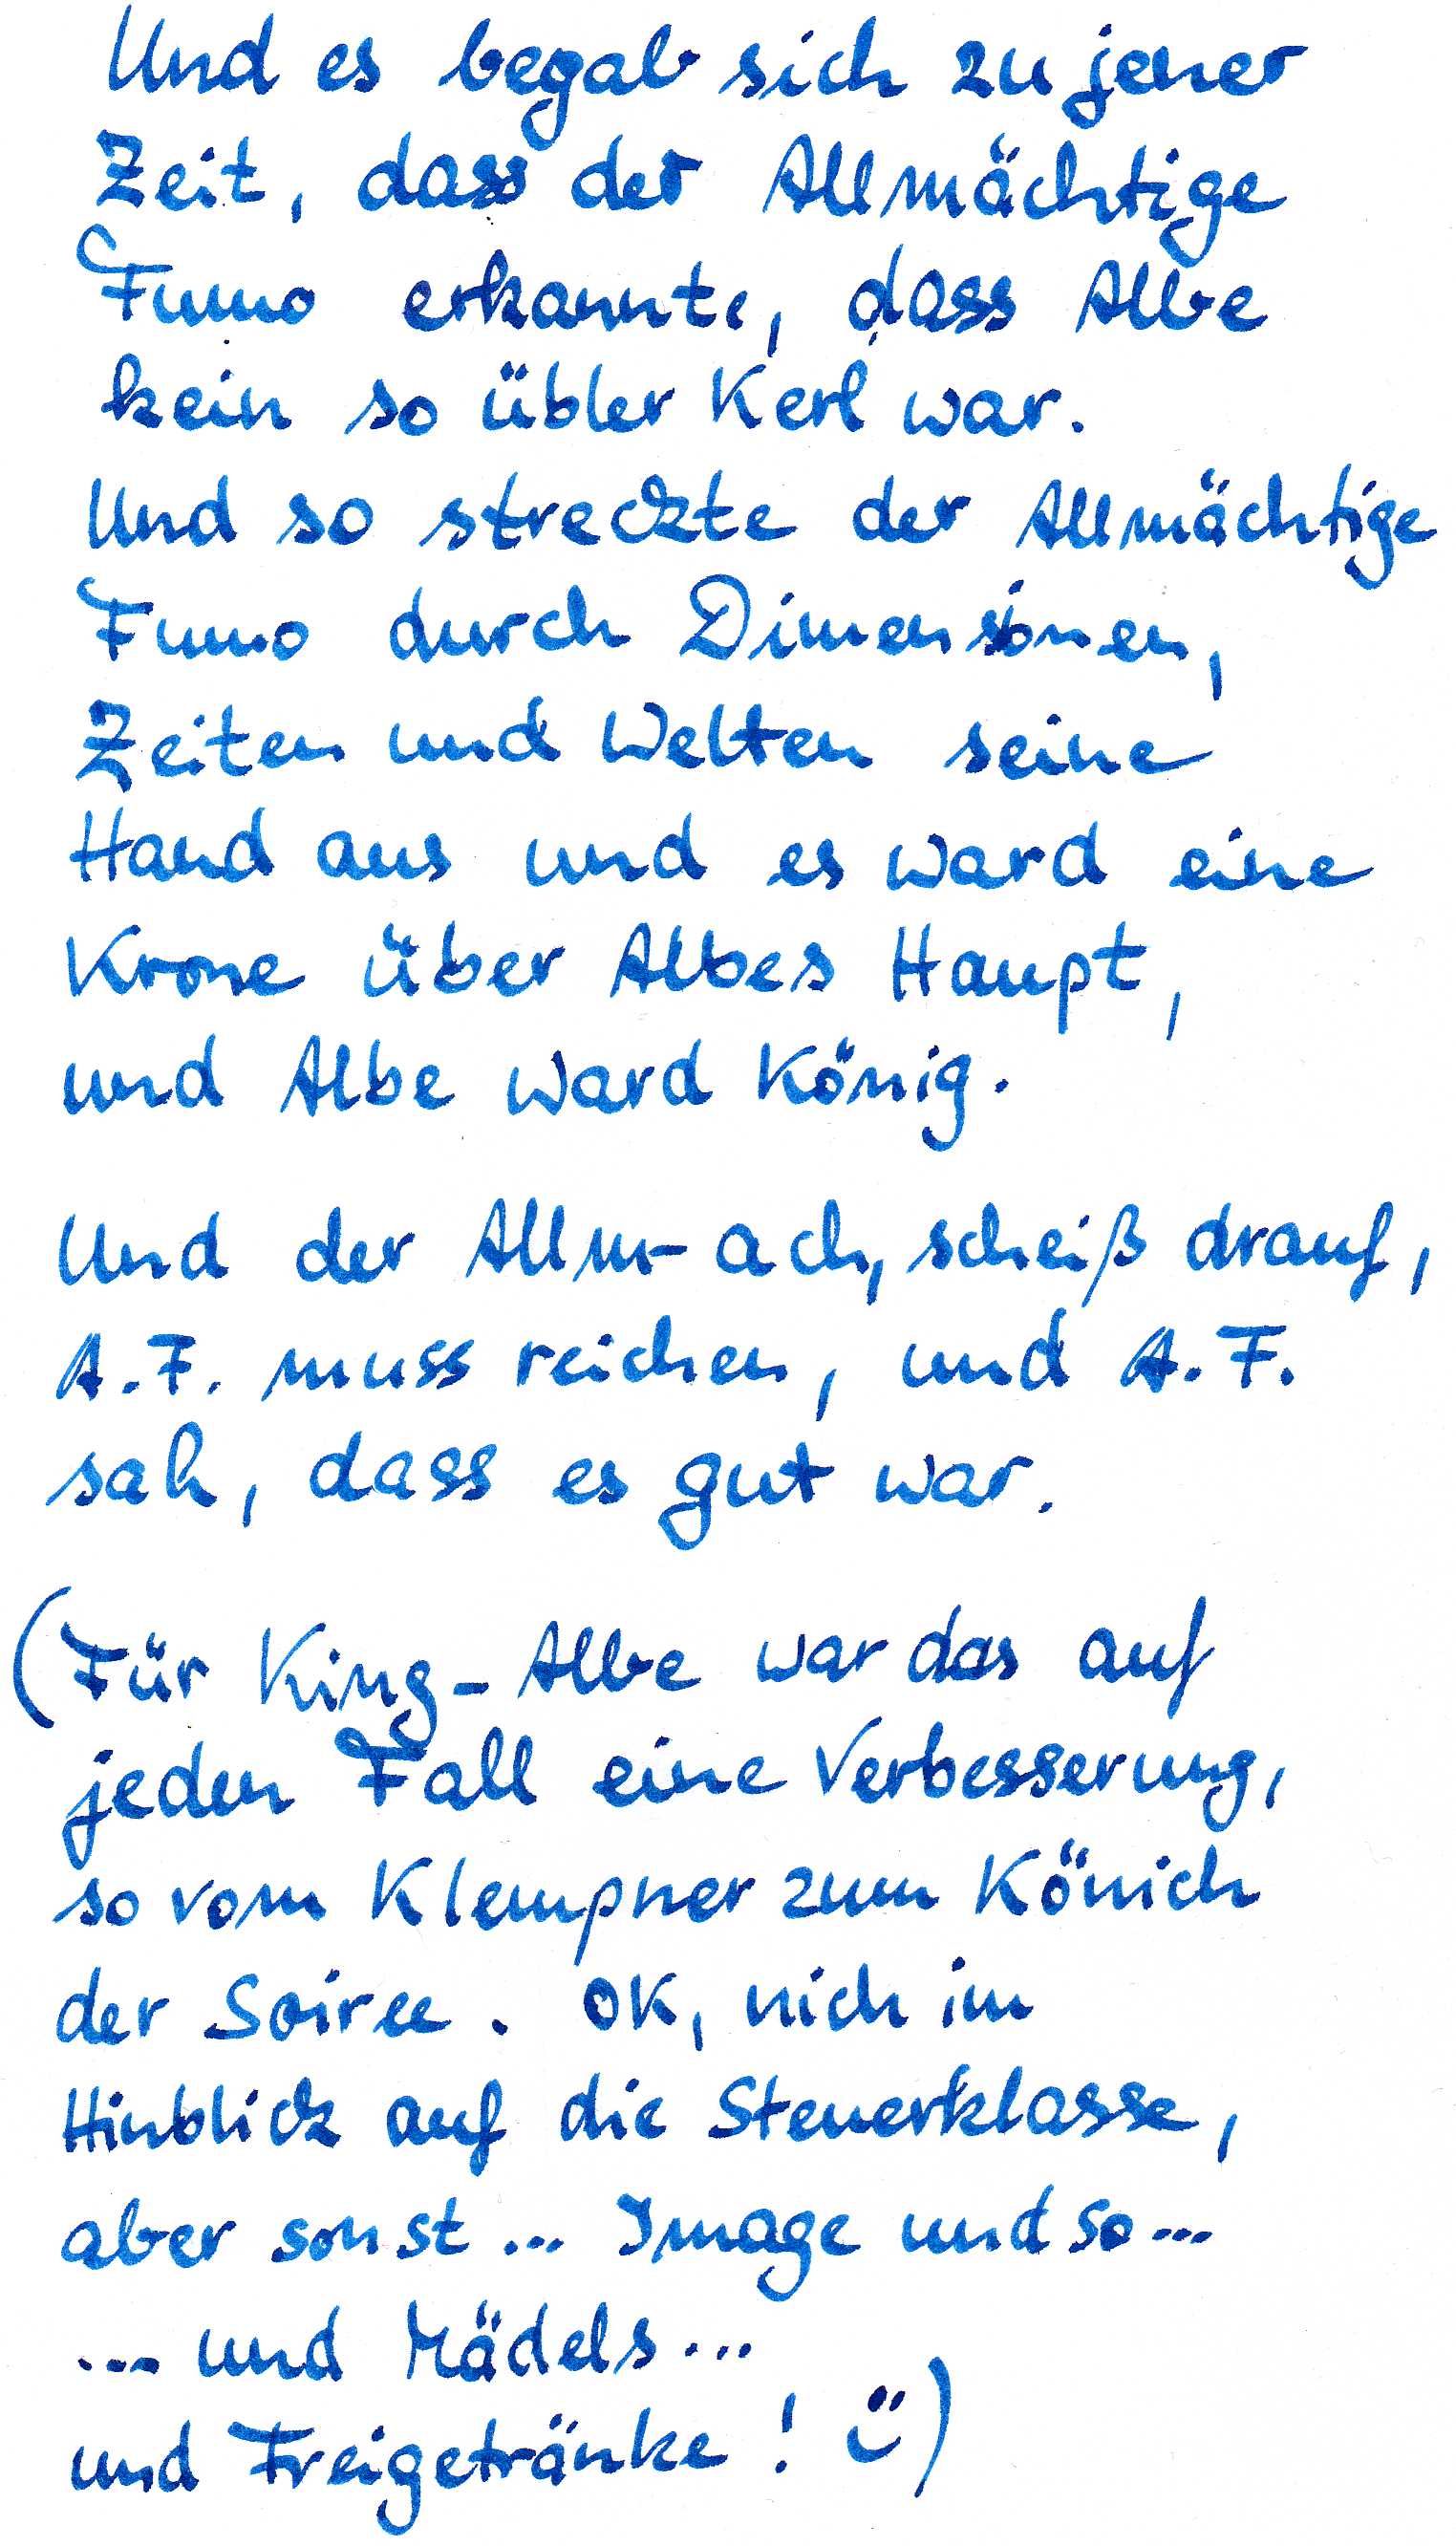 Und es begab sich zu jener
Zeit, dass der Allmächtige
Fumo erkannte, dass Albe
kein so übler Kerl war.
Und so streckte der Allmächtige
Fumo durch Dimensionen,
Zeiten und Welten seine
Hand aus und es ward eine
Krone über Albes Haupt,
und Albe ward König.
Und der Allm- ach, scheiß drauf,
A.F. muss reichen, und A.F.
sah, dass es gut war.
(Für King-Albe war das auf
jeden Fall eine Verbesserung,
so vom Klempner zum Könich
der Soiree. OK, nich im
Hinblick auf die Steuerklasse,
aber sonst... Image und so...
... und Mädels...
und Freigetränke! ü)